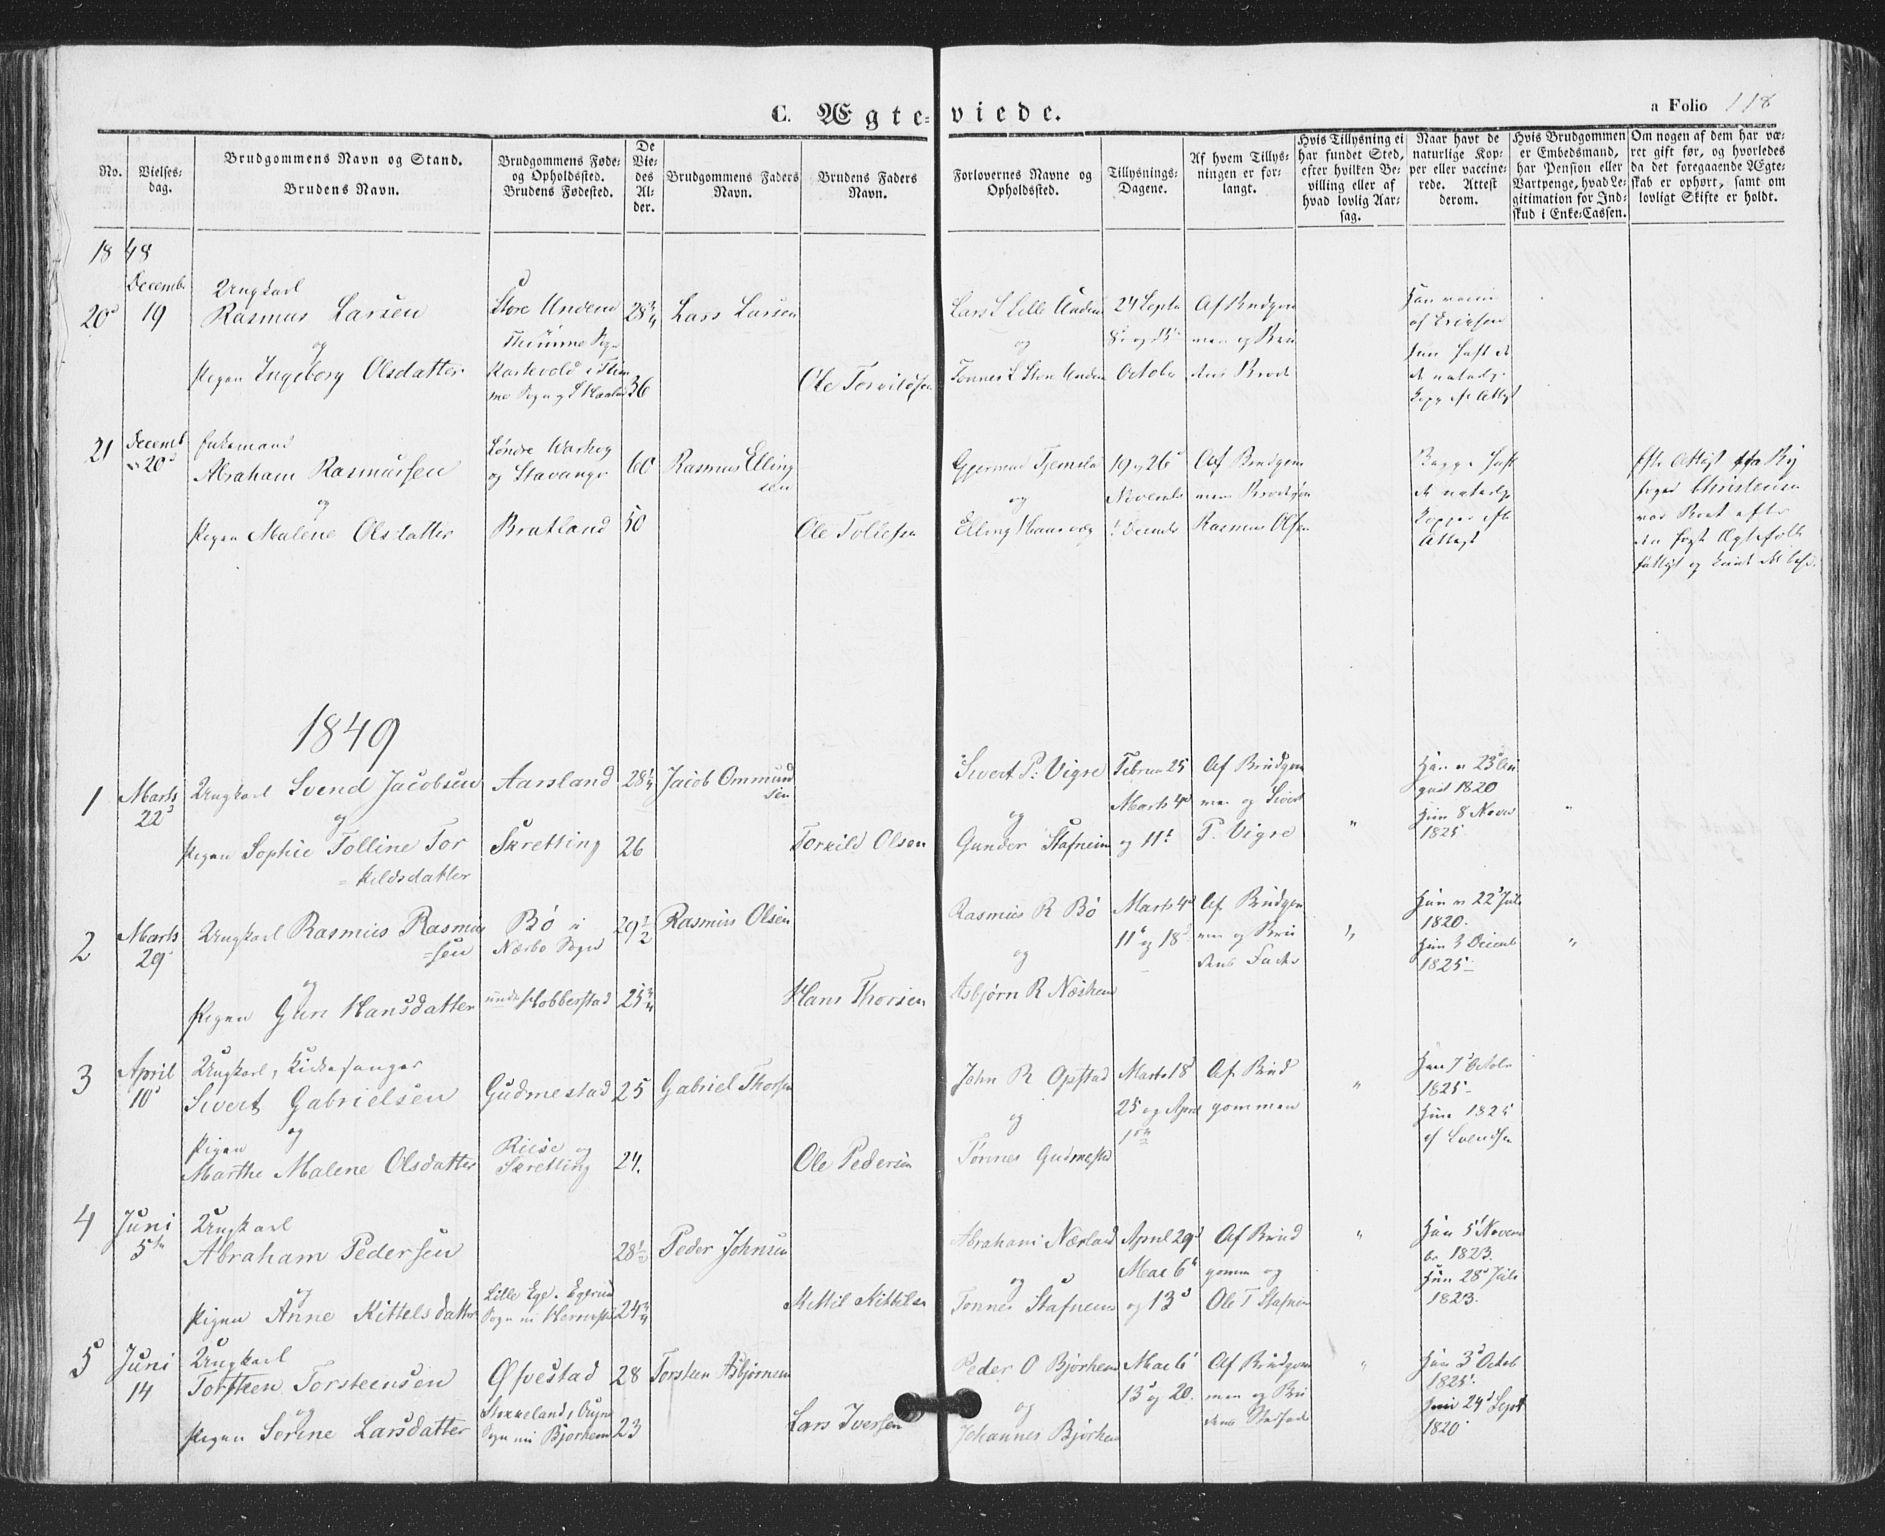 C. Ægte-viede.
a Folio 118
No.
Vielses-dag.
Brudgommens Navn og Stand.
Brudens Navn.
Brudgommens Føde- og Opholdssted.
Brudens Fødested.
De Viedes Alder.
Brudgommens Faders Navn.
Brudens Faders Navn.
Forlovernes Navne og Opholdssted.
Tillysnings-Dagene.
Af hvem Tillysningen er forlangt.
Hvis Tillysning ei har fundet Sted, efter hvilken Bevilling eller af hvad lovlig Aarsag.
Naar havt de naturlige Kopper eller vaccinerede. Attest derom.
Hvis Brudgommen er Embedsmand, har Pension eller Vartpenge, hvad Legitimation for Indskud i Enke-Cassen.
Om nogen af dem har været gift før, og hvorledes da det foregaaende Ægteskab er ophørt, samt om lovligt Skifte er holdt.
1848
20
Decemb 19
Ungkarl
Rasmus Larsen
og
Pigen Ingeborg Olsdatter
Store Undem
36
Lars Larsen
Lars L Lille Undem
og
Tonnes L Store Undem
24 Septe
Octobe
Af Brudgom
men og Bru
dens Broder
21
Decemb 20
Enkemand
Abraham Rasmussen
og
Pigen Malene Olsdatter
Søndre Warhog
og Stavanger
Bratland
60
50
Rasmus Elling
sen
Ole Tollefsen
og
19 og 26
Novemb
Decemb
Af Brudgom
men
Rasmus Olsen
Attest
Christensen
1849
1
Marts
22
Ungkarl Svend Jacobsen
og
Pigen Sophie Tolline Tor
=kildsdatter
Aarsland
Skretting
28 1/4
26
Jacob Ommund
sen
Torkild Olsen
Sivert P: Vigre
og
Gunder Stafneim
Februar 25
Marts 4
og 11
Af Brudgom
men og Sivert
P. Vigre
"
gust 1820
Hun 8 Novem
1825
"
2
Marts
29
Ungkarl Rasmus Rasmus
=sen
og
Pigen Guri Hansdatter
Bø i
Nærbø Sogn
Hobberstad
29 1/2
25 3/4
Rasmus Olsen
Hans Thorsen
Rasmus R Bø
og
Asbjørn R Næshem
Marts 4
11 og 18
Af Brudgom
men og Bru
dens Fader
"
22 Juli
1820.
Hun 3 Decemb
1825
"
3
April
10
Ungkarl, Kirkesanger
Sivert Gabrielsen
og
Pigen
Marthe Malene Olsdatter
Gudmestad
Riise og
Skretting
25
24.
Gabriel Thorsen
Ole Pedersen
John R Opstad
og
Tonnes Gudmestad
Marts 18
25 og April
1
Af Brud
gommen
"
Octobr
1825
Hun 1825
af Svendsen
4
Juni
5te
Ungkarl
Abraham Pedersen
og
Pigen Anne Kittelsdatter
Lille Ege. Egersund
Sogn
28 1/2
24 3/4
Peder Johnsen
Kittil Kittelsen
Abraham Nærland
og
Tonnes Stafneim
April 29
Mai 6
og 13
Af Brud
gomm og
Ole T Stafneim
"
Han 5 Novem
br 1823.
Hun 28 Juli
1823.
5
Juni
14
Ungkarl
Torsteen Torsteensen
og
Pigen Serine Larsdatter
Øfvestad
Stokkeland,
Sogn nu Bjorhem
28
23
Torsteen Asbjørnsen
Lars Iversen
Peder O Bjorhem
og
Johannes Bjørhem
Mai 6
13 og 20.
Af Brudgom
men og Bru
dens
"
Han 3 Octob
1825.
Hun 24 Sept
1820